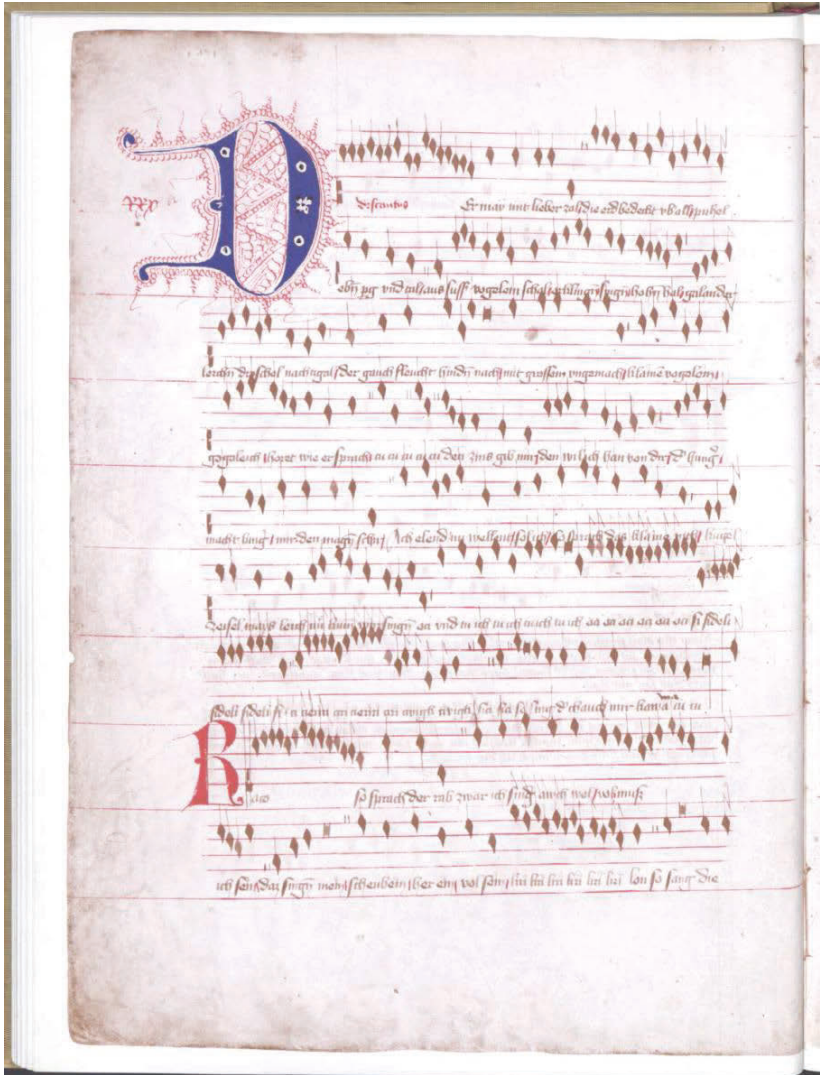 D
discantus Er may mit lieber zal die erd bedecket vberall pühel
ebñ pg vnd tal aus süss vogelein schal erklingñ singñ hohñ hal galander
lerchñ droschel nachtigal der gauch fleucht hindñ nach mit grossem vngemach klainē vogelein
gogoleich horet wie er sprach cu cu cu cu cu den zins gib mir den wil ich han von dir d hung
macht lung mir den magñ schir Ach elend nu wellent sol ich so sprach das klaine vich kungel
Zeisel mays lerch nu kum wir singñ oci vnd tu ich tu ich tu ich tu ich oci oci oci oci oci oci fi fideli
fideli fideli fi so sung d gauch nur kawa wa cu cu
Raco so sprach der rab zwar ich sing auch wol vol mus
ich sein das singñ mein scheub ein her ein vol sein liri liri liri liri liri liri lon so sang die